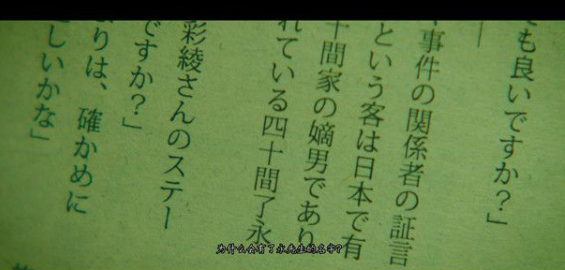 も良いですか?」
事件の関係者の証言
という客は日本で有
十間家の嫡男であり
れている四十間了永
彩綾さんのステー
ですか?」
りは、確かめに
しいかな」
为什么会有了永先生的名字?